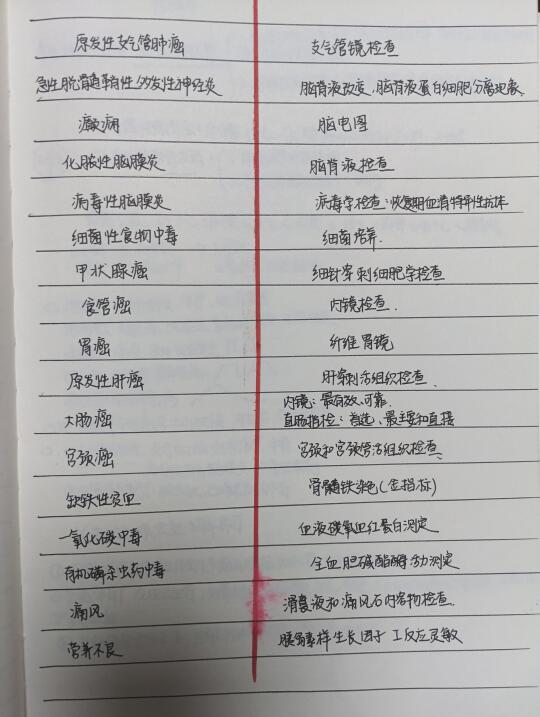 原发性支气管肺癌 支气管镜检查
急性脱髓鞘性多发性神经炎 脑脊液改变,脑脊液蛋白细胞分离现象
癫痫 脑电图
化脓性脑膜炎 脑脊液检查
病毒性脑膜炎 病毒学检查:恢复期血清特异性抗体
细菌性食物中毒 细菌培养.
甲状腺癌 细针穿刺细胞学检查
食管癌 内镜检查.
胃癌 纤维胃镜
原发性肝癌 肝穿刺活组织检查.
大肠癌 内镜:最有效,可靠.
直肠指检:首选、最主要和直接
宫颈癌 宫颈和宫颈管活组织检查.
缺铁性贫血 骨髓铁染色(金指标)
一氧化碳中毒 血液碳氧血红蛋白测定
有机磷杀虫药中毒 全血胆碱酯酶活力测定
痛风 滑囊液和痛风石内容物检查.
营养不良 胰岛素样生长因子 I 反应灵敏